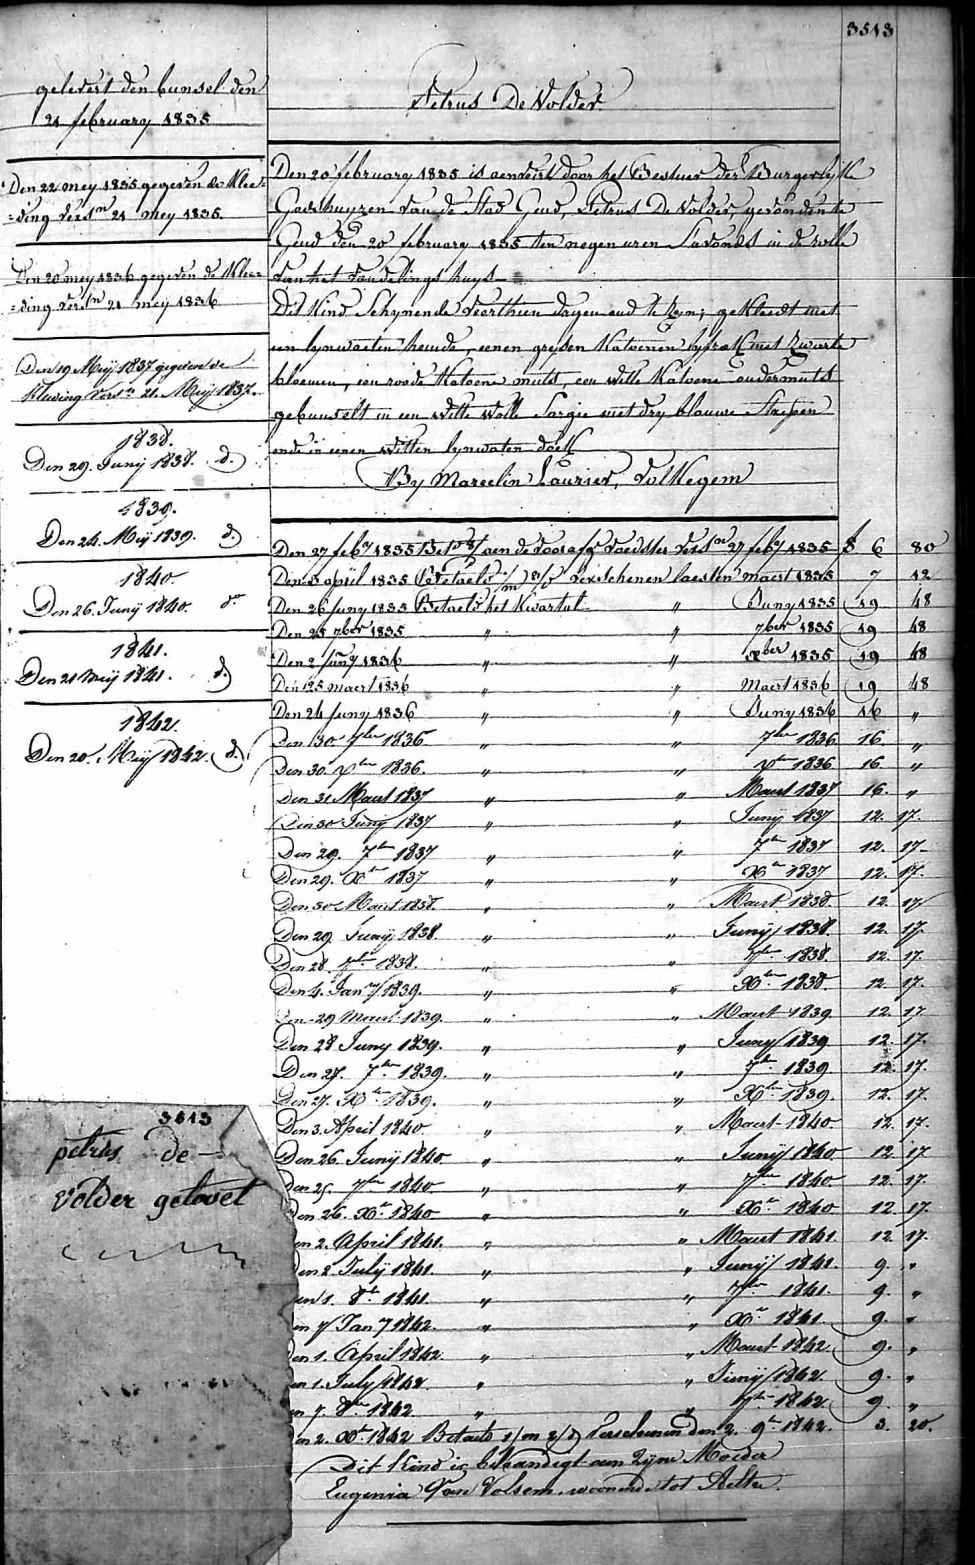 3513
gelevert den bunsel den
21 february 1835
Den 22 mey 1835 gegeven de Klee=
=ding versn 21 mey 1835.
Den 20 mey 1836 gegeven de Klee=
=ding versn 21 mey 1836
Den 19 Meÿ 1837 gegeven de
Kleeding versn 21. Meÿ 1837.
1838.
Den 29. Junÿ 1838. d.
1839.
Den 24. Meÿ 1839. d.
1840.
Den 26. Junÿ 1840. do
1841.
Den 21 Meÿ 1841. d.
1842.
Den 20. Meÿ 1842. d.
Petrus De Volder
Den 20 february 1835 is aenveird door het Bestuer der Burgerlyke
Godshuyzen van de Stad Gend, Petrus De Volder, gevonden te
Gend den 20 february 1835 ten negen uren s'avonds in de rolle
van het vondelings huys
Dit Kind Schynende veerthien dagen oud te zyn; gekleedt met
een lynwaeten hemde, eenen gryzen Katoenen met zwarte
bloemen, een roode Katoene muts, een witte Katoene ondermuts
gebunselt in een witte wolle Sargie met dry blauwe Strepen
ende in eenen witten lynwaten doek
By Marcelin Laurier, Volkegem
Den 27 feby 1835 aen de voorafg voedster versn 27 feby 1835 f 6 80
Den 3 april 1835 Betaeld verschenen laesten maert 1835 7 12
Den 26 juny 1835 Betaeld het Kwartal " Juny 1835 19 48
Den 28 7ber 1835 " " 7ber 1835 19 48
Den 2 Jany 1836 " " xber 1835 19 48
Den 25 maert 1836 " " Maert 1836 19 48
Den 24 juny 1836 " " Juny 1836 16 "
Den 30 7ber 1836 " " 7ber 1836 16. "
Den 30. Xber 1836. " " Xber 1836 16 "
Den 31 Maert 1837 " " Maert 1837 16. "
Den 30 Junÿ 1837 " " Junÿ 1837 12. 17.
Den 29. 7ber 1837 " " 7ber 1837 12. 17
Den 29. Xber 1837 " " Xber 1837 12. 17.
Den 30 Maert 1838. " " Maert 1838. 12. 17
Den 29 Junÿ 1838. " " Junÿ 1838. 12. 17.
Den 28. 7ber 1838. " " 7ber 1838. 12. 17.
Den 4. Jany 1839. " " Xber 1838. 12 17.
Den 29 Maert 1839. " " Maert 1839 12. 17
Den 28 Juny 1839. " " Juny 1839 12. 17.
Den 27. 7ber 1839. " " 7ber 1839. 12. 17.
Den 27. Xber 1839. " " Xber 1839. 12. 17.
Den 3. April 1840 " " Maert 1840 12. 17.
Den 26. Junÿ 1840 " " Junÿ 1840 12. 17
Den 25. 7ber 1840. " " 7ber 1840 12. 17.
Den 26. Xber 1840 " " Xber 1840 12 17.
en 2. April 1841. " " Maert 1841 12 17.
Den 2 Julÿ 1841. " " Junÿ 1841. 9. "
en 1. 8ber 1841. " " 7ber 1841. 9. "
en 7 Jany 1842. " " Xber 1841. 9. "
en 1. April 1842. " " Maert 1842 9. "
en 1. July 1842 " " Junÿ 1842. 9. "
en 7. 8ber 1842 " " 7ber 1842. 9 "
en 2. Xber 1842 Betaeld 2/m 2/d verschenen den 2. 9ber 1842. 3. 20.
Dit Kind is behandigt aen zÿne Moeder
Eugenia Van Volsem, woonende tot Aelter.
3513
petrus de
volder gelovet